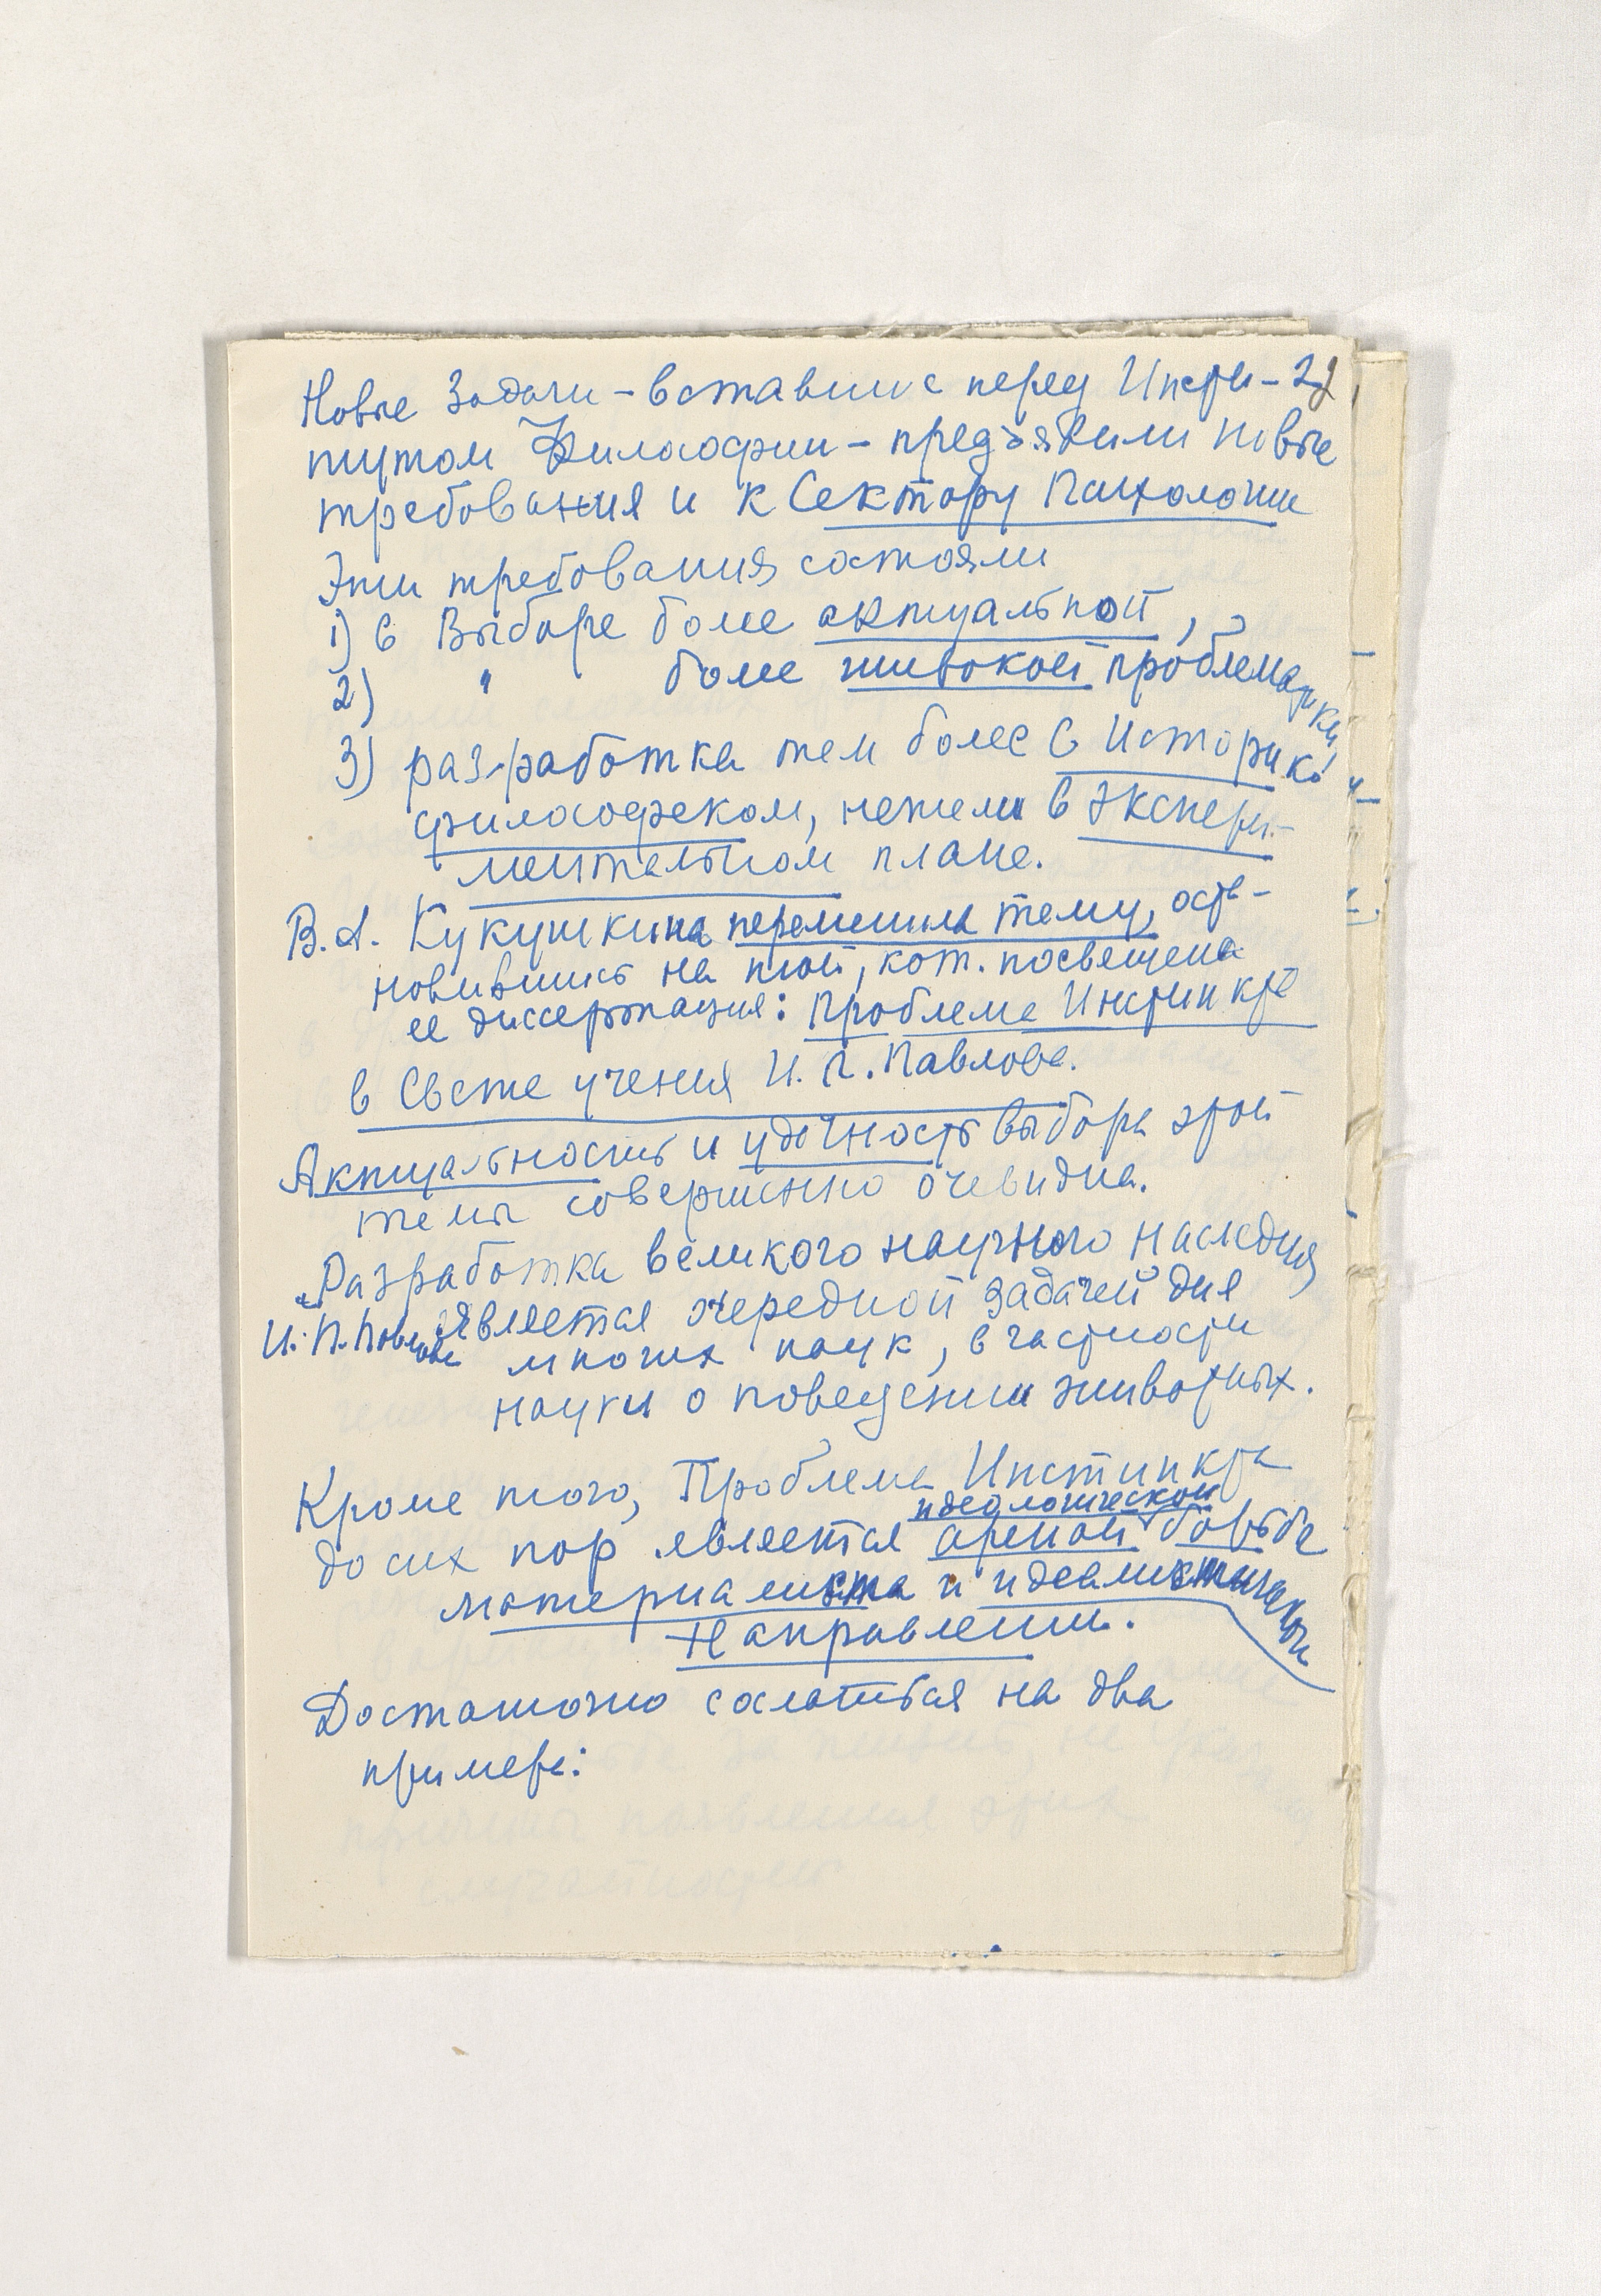 Новые Задачи – вставшие перед Инсти-
тутом Философии – предъявили новые
требования и к Сектору Психологии
Эти требования состояли
1) в Выборе более актуальной,
2) " более широкой проблематики
3) разработка тем более в Историко
философском, нежели в Экспери-
ментальном плане.
В.А. Кукушкина переменила тему, оста-
новившись на той, кот. посвящена
ее диссертация: Проблеме Инстинкта
в Свете учения И.П. Павлова.
Актуальность и удачность выбора этой
темы совершенно очевидна.
„Разработка великого научного наследия
И.П. Павлова является очередной задачей для
многих наук, в частности
науки о поведении животных.
Кроме того, Проблема Инстинкта
идеологической
до сих пор является ареной борьбы
материалиста и идеалистическ
направлении.
Достаточно сослаться на два
примера: